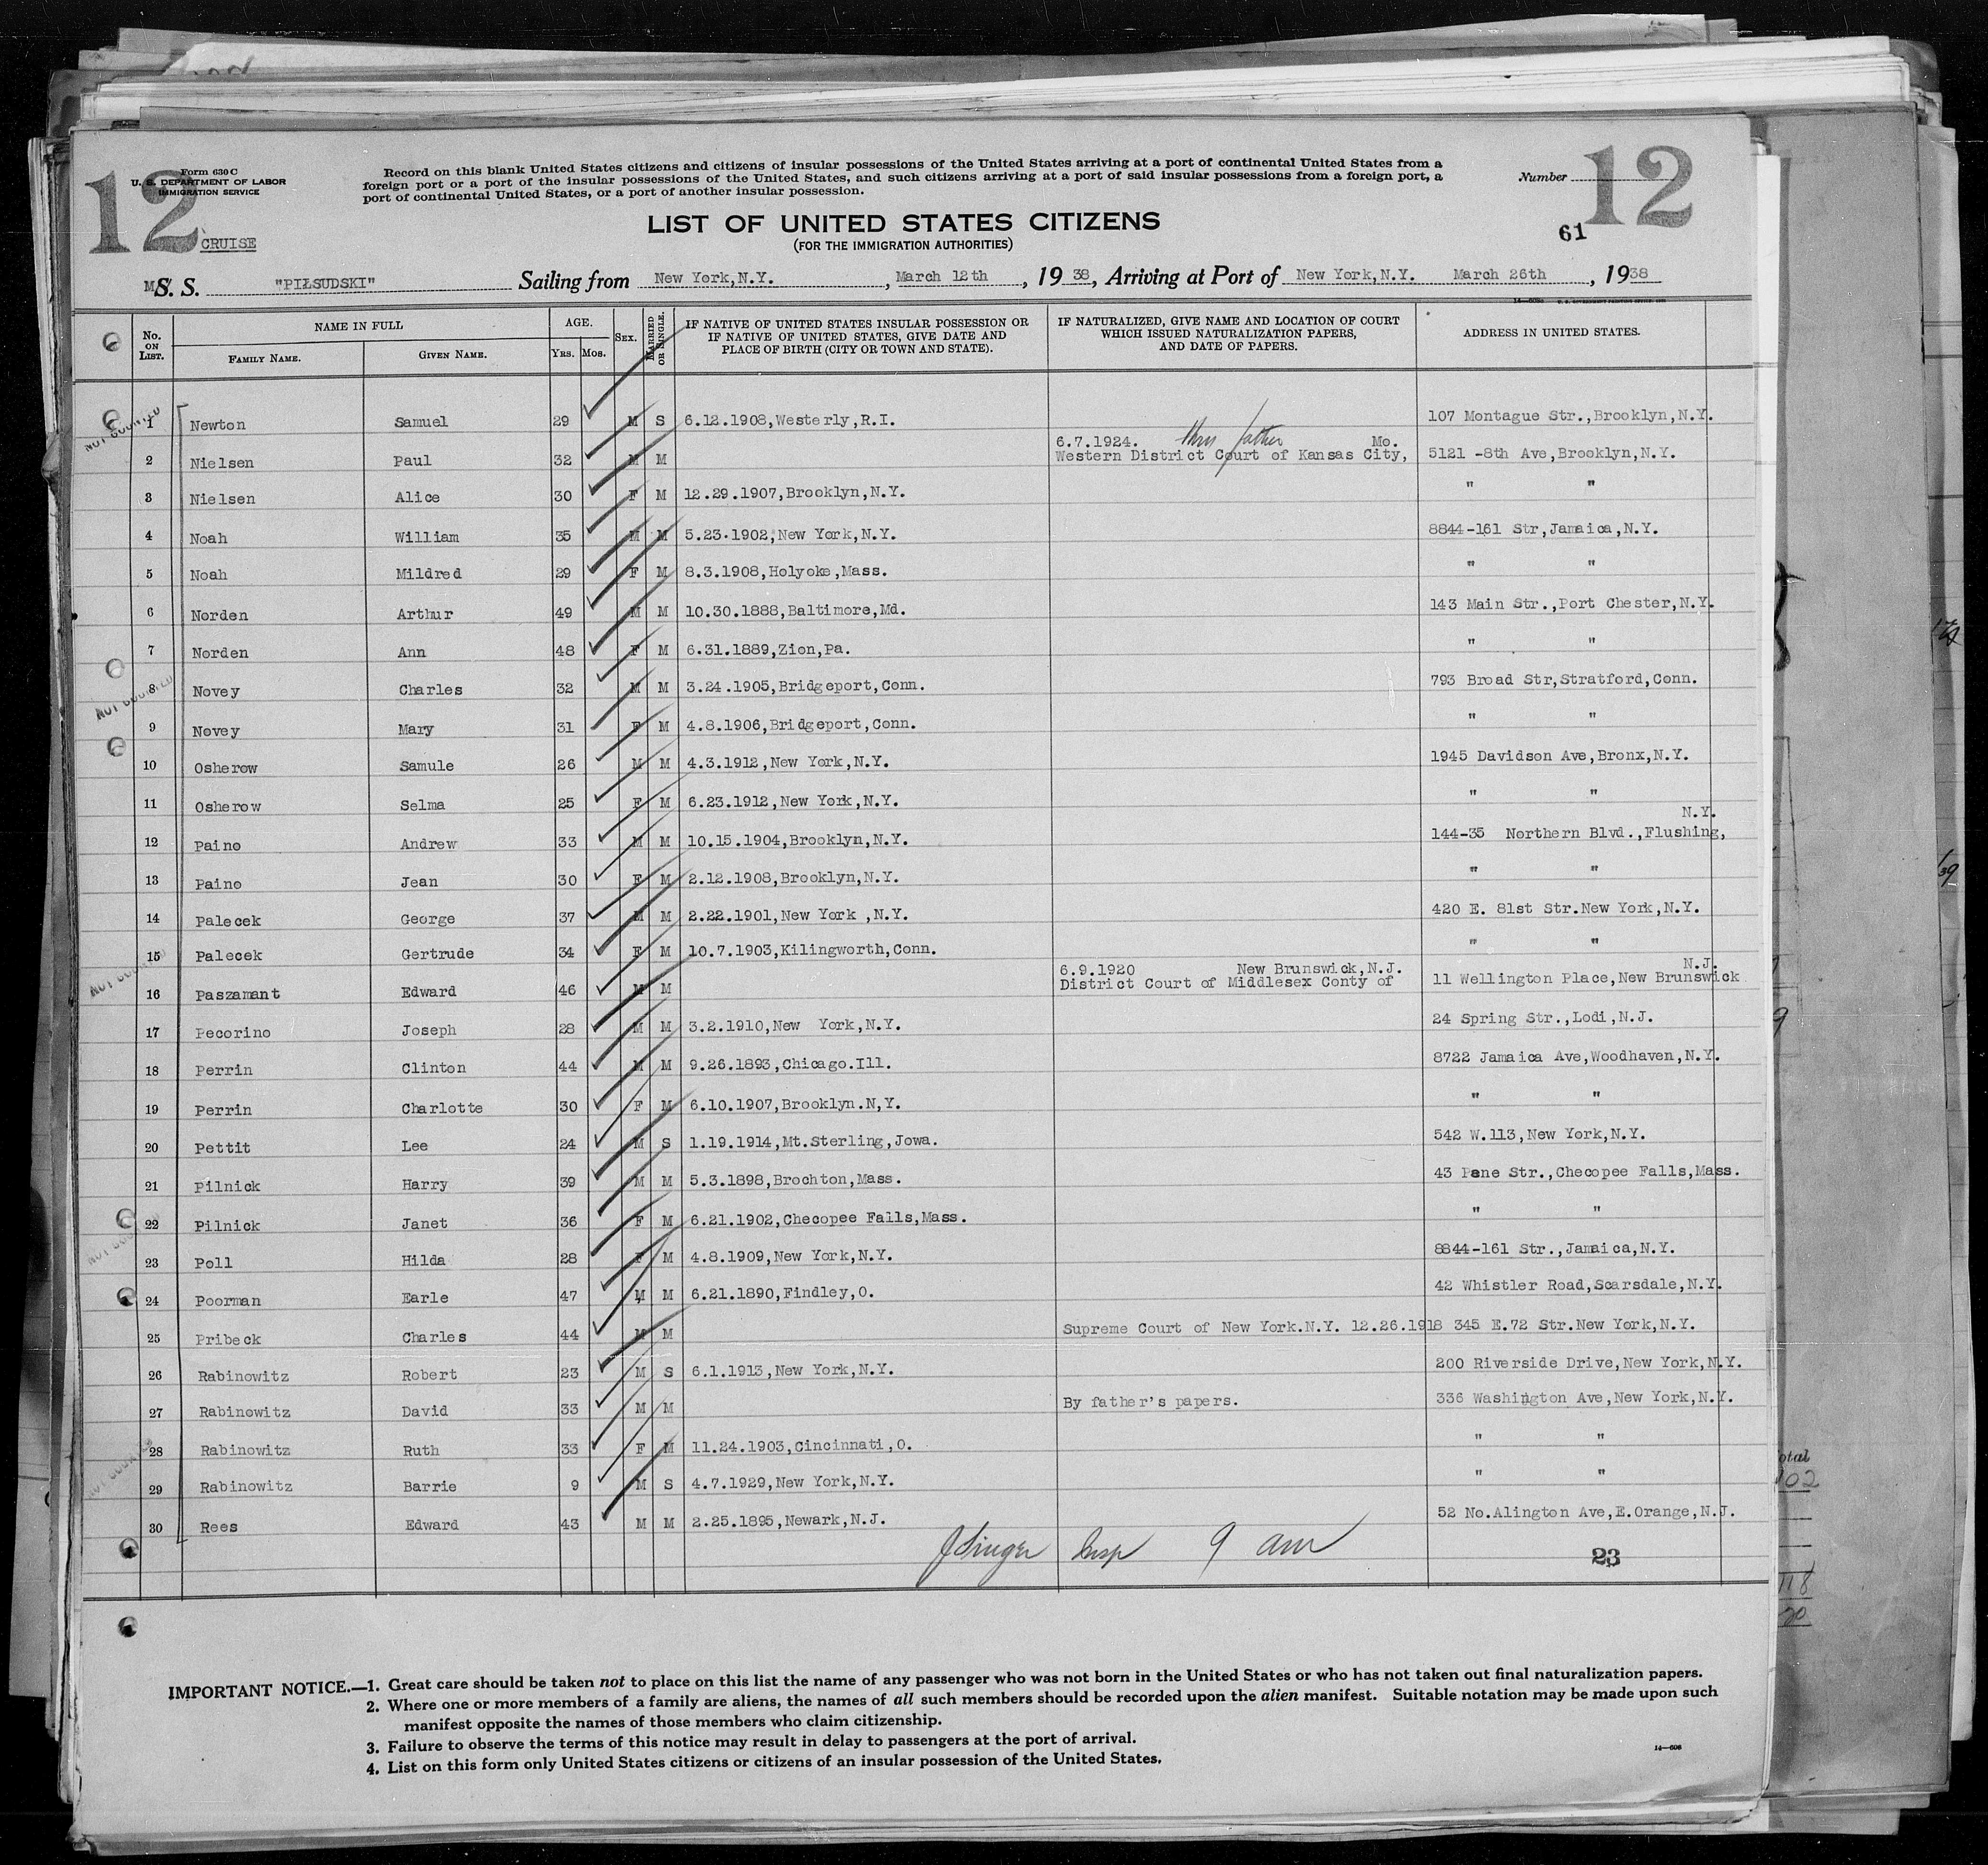 12
12
Form 630 C
U. S. DEPARTMENT OF LABOR
IMMIGRATION SERVICE
Record on this blank United States citizens and citizens of insular possessions of the United States arriving at a port of continental United States from a
foreign port or a port of the insular possessions of the United States, and such citizens arriving at a port of said insular possessions from a foreign port, a
port of continental United States, or a port of another insular possession.
Number
CRUISE
LIST OF UNITED STATES CITIZENS
(FOR THE IMMIGRATION AUTHORITIES)
61
M/S. S. "PIŁSUDSKI" Sailing from New York,N.Y. , March 12th , 19 38, Arriving at Port of New York,N.Y. March 26th , 19 38
No. ON LIST. NAME IN FULL FAMILY NAME. GIVEN NAME. AGE. YRS. MOS. SEX. MARRIED OR SINGLE. IF NATIVE OF UNITED STATES INSULAR POSSESSION OR IF NATIVE OF UNITED STATES, GIVE DATE AND PLACE OF BIRTH (CITY OR TOWN AND STATE). IF NATURALIZED, GIVE NAME AND LOCATION OF COURT WHICH ISSUED NATURALIZATION PAPERS, AND DATE OF PAPERS. ADDRESS IN UNITED STATES.
NOT COUNTED
1 Newton Samuel 29 M S 6.12.1908,Westerly,R.I. 107 Montague Str.,Brooklyn,N.Y.
6.7.1924. thru father Mo.
2 Nielsen Paul 32 M M Western District Court of Kansas City, 5121 -8th Ave,Brooklyn,N.Y.
3 Nielsen Alice 30 F M 12.29.1907,Brooklyn,N.Y. " "
4 Noah William 35 M M 5.23.1902,New York,N.Y. 8844-161 Str,Jamaica,N.Y.
5 Noah Mildred 29 F M 8.3.1908,Holyoke,Mass. " "
6 Norden Arthur 49 M M 10.30.1888,Baltimore,Md. 143 Main Str.,Port Chester,N.Y.
7 Norden Ann 48 F M 6.31.1889,Zion,Pa. " "
NOT COUNTED
8 Novey Charles 32 M M 3.24.1905,Bridgeport,Conn. 793 Broad Str,Stratford,Conn.
9 Novey Mary 31 F M 4.8.1906,Bridgeport,Conn. " "
10 Osherow Samule 26 M M 4.3.1912,New York,N.Y. 1945 Davidson Ave,Bronx,N.Y.
11 Osherow Selma 25 F M 6.23.1912,New York,N.Y. " "
N.Y.
12 Paino Andrew 33 M M 10.15.1904,Brooklyn,N.Y. 144-35 Northern Blvd.,Flushing,
13 Paino Jean 30 F M 2.12.1908,Brooklyn,N.Y. " "
14 Palecek George 37 M M 2.22.1901,New York ,N.Y. 420 E. 81st Str.New York,N.Y.
15 Palecek Gertrude 34 F M 10.7.1903,Kilingworth,Conn. " "
NOT COUNTED
6.9.1920 New Brunswick,N.J. N.J.
16 Paszamant Edward 46 M M District Court of Middlesex Conty of 11 Wellington Place,New Brunswick
17 Pecorino Joseph 28 M M 3.2.1910,New York,N.Y. 24 Spring Str.,Lodi,N.J.
18 Perrin Clinton 44 M M 9.26.1893,Chicago.Ill. 8722 Jamaica Ave,Woodhaven,N.Y.
19 Perrin Charlotte 30 F M 6.10.1907,Brooklyn.N,Y. " "
20 Pettit Lee 24 M S 1.19.1914,Mt.Sterling,Jowa. 542 W.113,New York,N.Y.
21 Pilnick Harry 39 M M 5.3.1898,Brochton,Mass. 43 Pene Str.,Checopee Falls,Mass.
22 Pilnick Janet 36 F M 6.21.1902,Checopee Falls,Mass. " "
NOT COUNTED
23 Poll Hilda 28 F M 4.8.1909,New York,N.Y. 8844-161 Str.,Jamaica,N.Y.
24 Poorman Earle 47 M M 6.21.1890,Findley,O. 42 Whistler Road,Scarsdale,N.Y.
25 Pribeck Charles 44 M M Supreme Court of New York.N.Y. 12.26.1918 345 E.72 Str.New York,N.Y.
26 Rabinowitz Robert 23 M S 6.1.1913,New York,N.Y. 200 Riverside Drive,New York,N.Y.
27 Rabinowitz David 33 M M By father's papers. 336 Washington Ave,New York,N.Y.
28 Rabinowitz Ruth 33 F M 11.24.1903,Cincinnati,O. " "
NOT COUNTED
29 Rabinowitz Barrie 9 M S 4.7.1929,New York,N.Y. " "
30 Rees Edward 43 M M 2.25.1895,Newark,N.J. 52 No.Alington Ave,E.Orange,N.J.
J Singer Insp 9 am
23
IMPORTANT NOTICE.—1. Great care should be taken not to place on this list the name of any passenger who was not born in the United States or who has not taken out final naturalization papers.
2. Where one or more members of a family are aliens, the names of all such members should be recorded upon the alien manifest. Suitable notation may be made upon such
manifest opposite the names of those members who claim citizenship.
3. Failure to observe the terms of this notice may result in delay to passengers at the port of arrival.
4. List on this form only United States citizens or citizens of an insular possession of the United States.
14—606